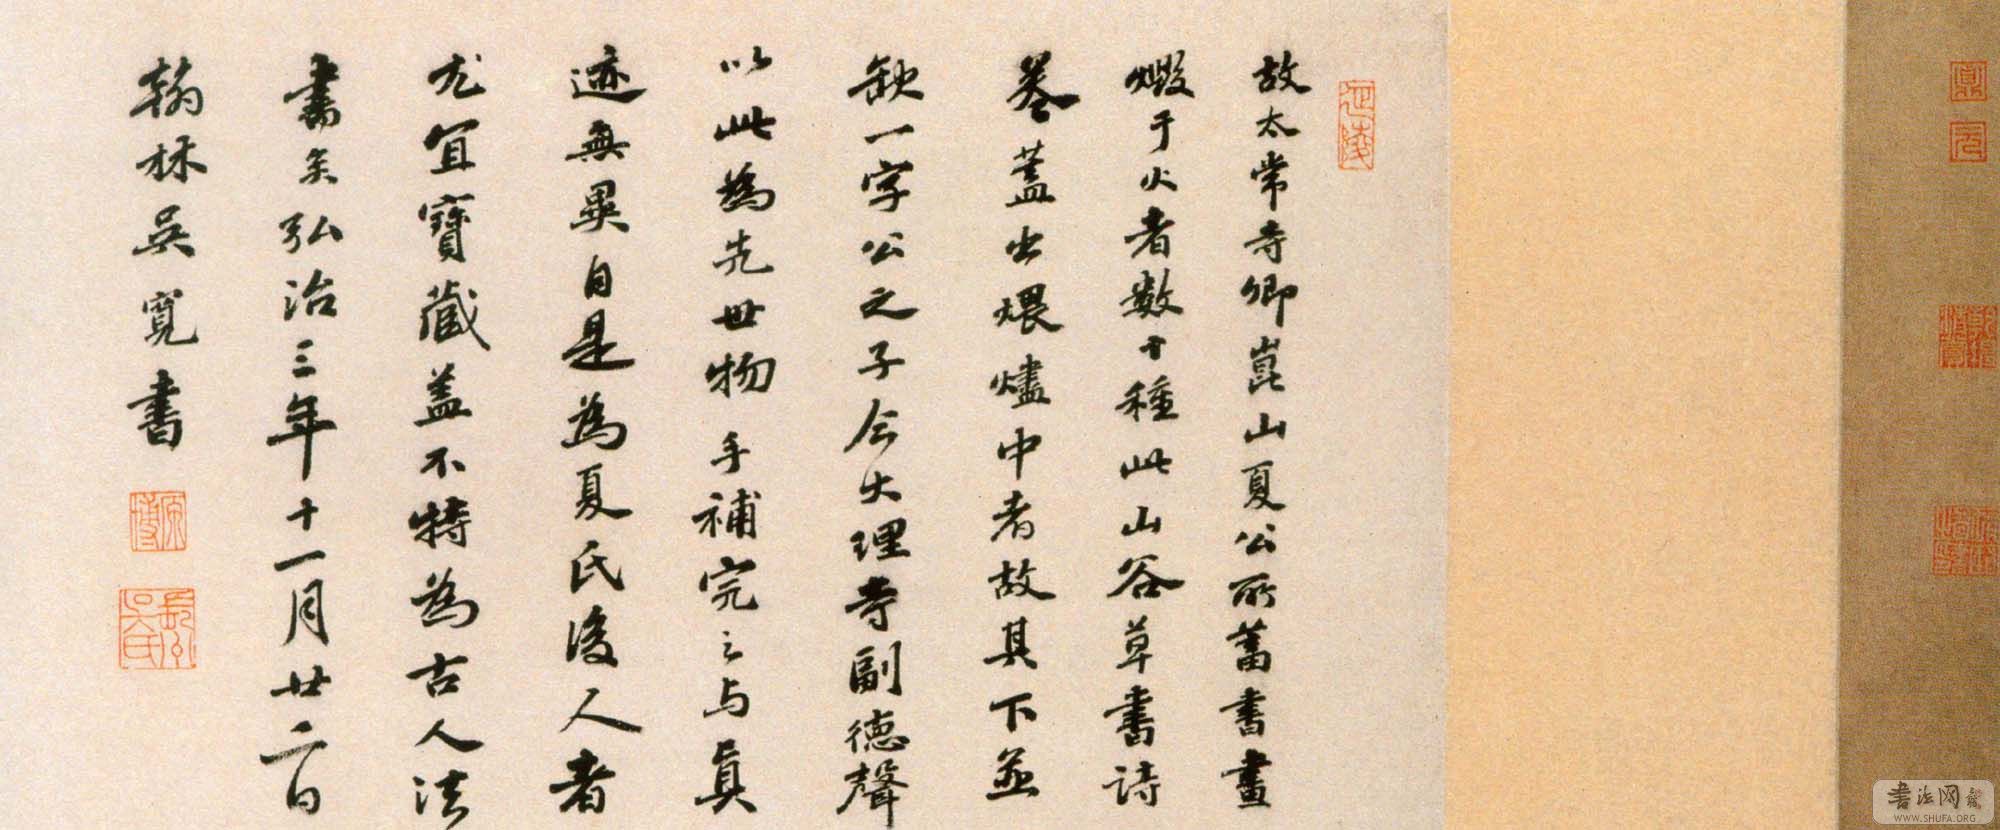 故太常寺卿崑山夏公所蓄書畫
燬于火者数十種此山谷草書詩
卷蓋出煨燼中者故其下並
缺一字公之子今大理寺副德聲
以此為先世物手補完之与真
迹無異自是為夏氏後人者
尤宜寶藏盖不特為古人法
書矣弘治三年十一月廿二日
翰林吳寬書
原博
書法网
WWW.SHUFA.ORG